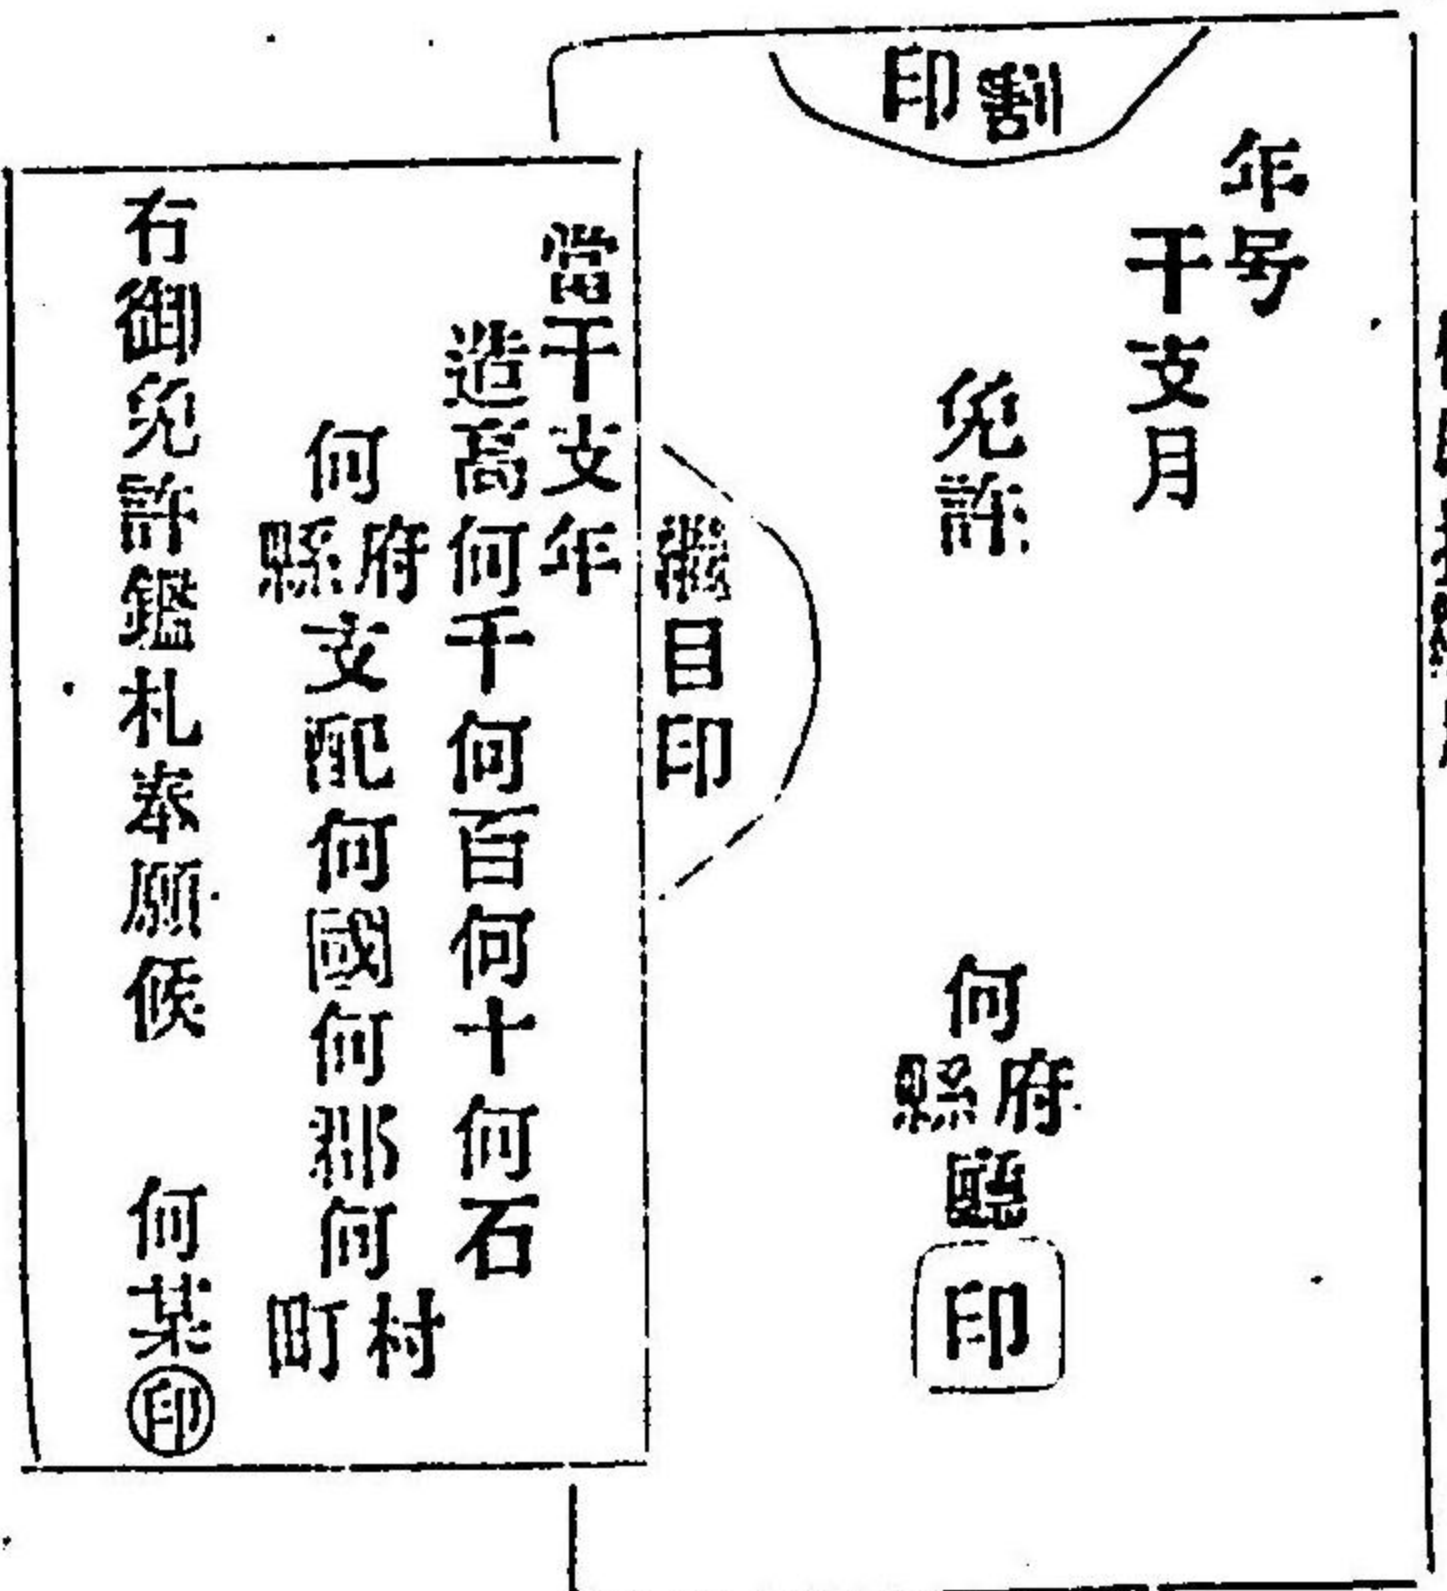 割印
年号
干支月
免許
何府縣廳印
繼目印
當干支年
造高何千何百何十何石
何府縣支配何國何郡何村町
右御免許鑑札奉願候　何某㊞